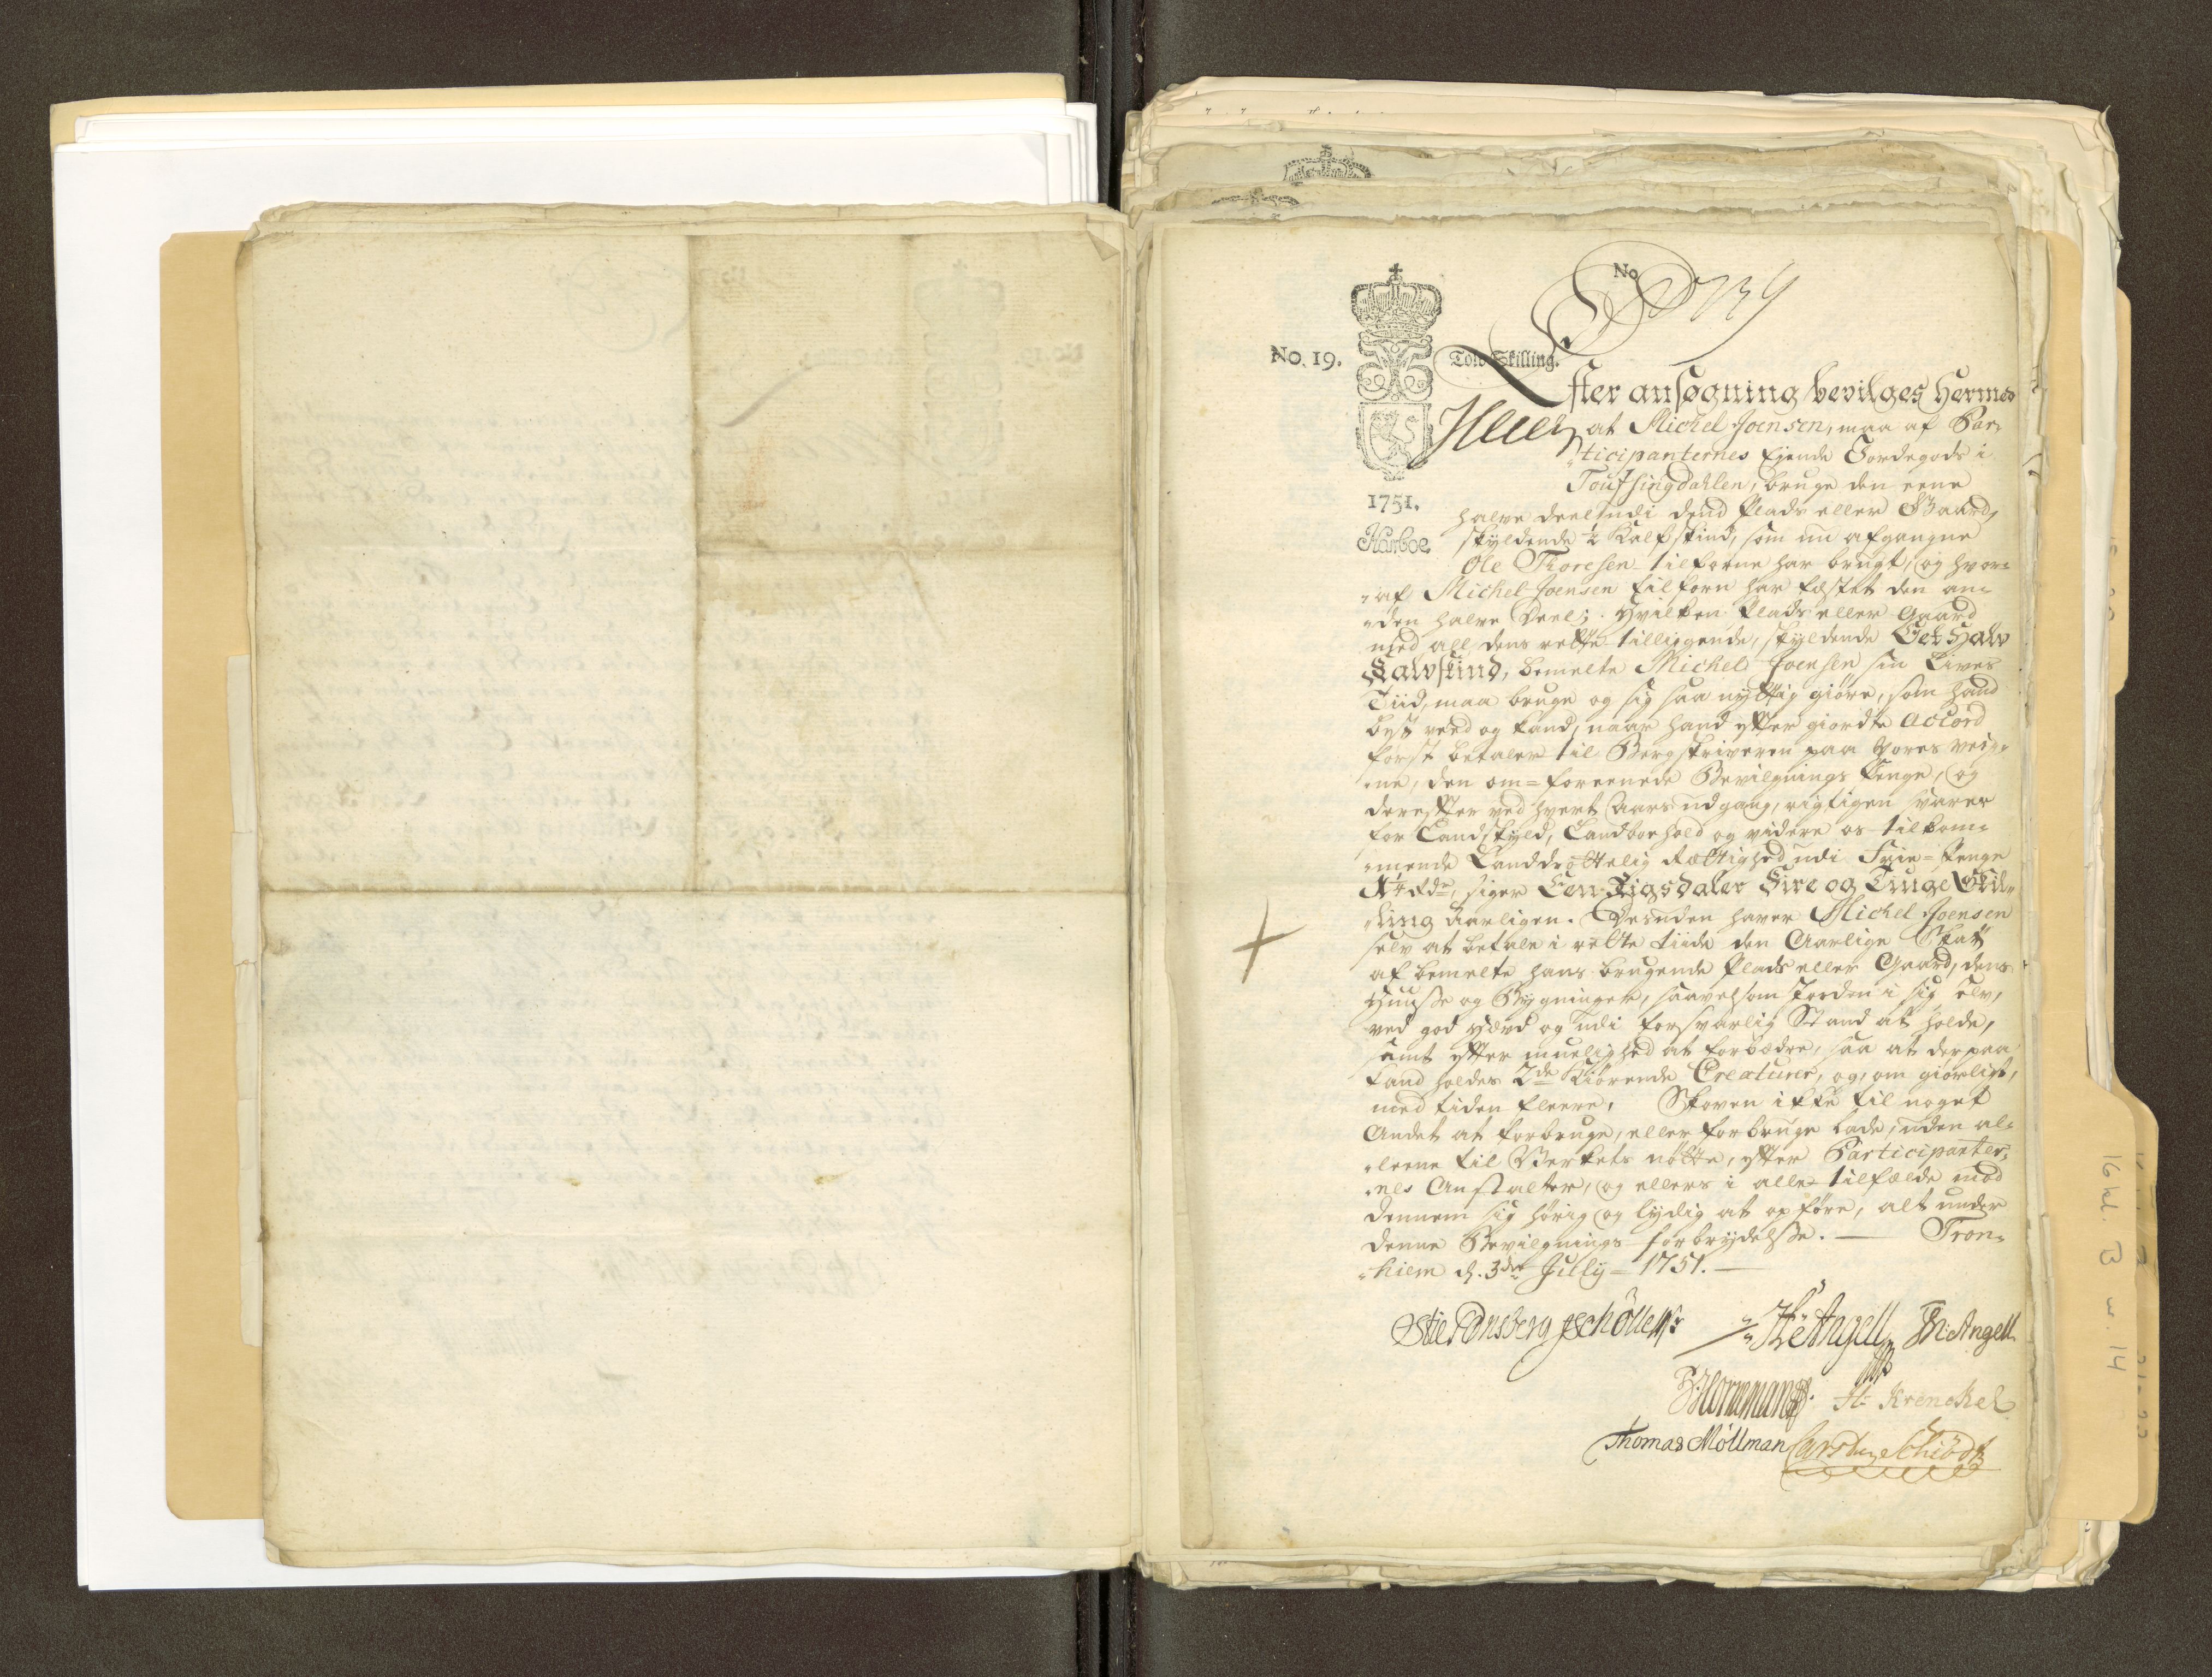 No
No. 19.
Tolv Skilling.
Efter ansøgning bevilges Hermed
at Michel Joensen, maa af Par„
„ticipanternes Ejende Jordegods i
Touffsingdahlen, bruge den eene
1751.
halve Deel udi dend Plads eller Gaard,
Harboe
skyldende ½ Kalfskind, som nu afgangne
Ole Thoresen tilforne har brugt, og hvor„
„af Michel Joensen tilforn har fæstet den an„
„den halve Deel; Hvilken Plads eller Gaard
med all dens rette tilliggende, skyldende Eet Halv
Kalvskind, bemelte Michel Joensen sin Lives
Tiid, maa bruge og sig saa nyttig giøre, som hand
best veed og kand, naar hand efter giordte Accord
først betaler til Bergskriveren paa Vores veig„
„ne, den om=foreenede Bevilgnings Penge, og
derefter ved hvert Aars udgang, rigtigen svarer
for Landskyld, Landboehold og videre os tilkom„
„mende Landdrottelig Rættighed udi Frie=Penge
1¼ Rdr, siger Een Rigsdaler Fire og Tiuge Skil„
„ling Aarligen. Desuden haver Michel Joensen
selv at betale i rette tiide den Aarlige Skatt
af bemelte hans brugende Plads eller Gaard, dens
Huusse og Bygninger, saavelsom Jorden i sig selv,
ved god Hævd og udi forsvarlig Stand at holde,
samt efter muelighed at forbædre, saa at derpaa
kand holdes 2de Kiørende Creaturer, og, om giørligt,
med tiden fleere. Skoven ikke til noget
Andet at forbruge, eller forbruge lade, uden al„
„leene til Verkets nøtte, efter Participanter„
„nes Anstalter, og ellers i alle tilfælde mod
dennem sig hørig og lydig at opføre, alt under
denne Bevilgnings forbrydelsse. — Tron„
„hiem d. 3die July 1751. —
Stie Tønsberg Schøller
Angell
Th: Angell
Hornemann
H: Krenckel
Thomas Møllman
Carsten Schiødt
16 kl. B
14